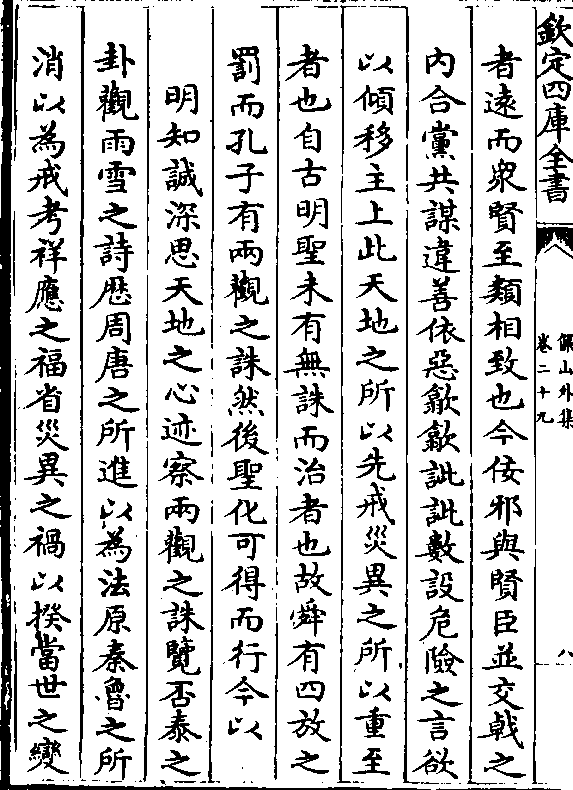 欽定四庫全書
儼山外集
卷二十九
八
者遠而衆賢至類相致也今佞邪與賢臣並交戟之
内合黨共謀違善依惡歙歙訿訿數設危險之言欲
以傾移主上此天地之所以先戒災異之所以重至
者也自古明聖未有無誅而治者也故舜有四放之
罰而孔子有兩觀之誅然後聖化可得而行今以
明知誠深思天地之心迹察兩觀之誅覽否泰之
卦觀雨雪之詩歴周唐之所進以為法原秦魯之所
消以為戒考祥應之福省災異之禍以揆當世之變